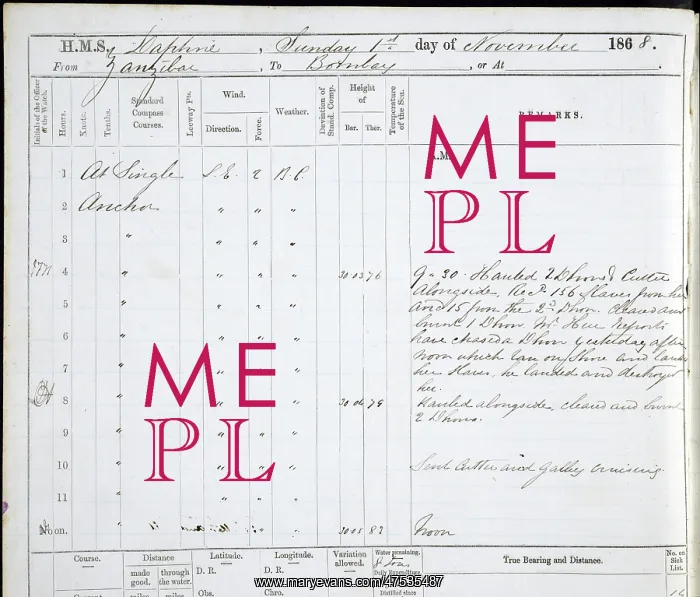 H.M.S. Daphne, Sunday 1st day of November 1868.
From Zanzibar, To Bombay, or At
Initials of the Officer of the Watch.
Hours.
Knots.
Tenths.
Standard Compass Courses.
Leeway Pts.
Wind.
Direction.
Force.
Weather.
Deviation of Stand. Comp.
Height of
Bar. Ther.
Temperature of the Sea.
REMARKS.
A.M.
1 At Single S.E. 2 B.C.
2 Anchor " " "
3 " " " "
4 " " " " 30.03 76
5 " " " "
6 " " " "
7 " " "
8 " " " 30.06 79
9 " " " "
10 " " " "
11 " " " "
Noon. " 30.05 82
9.30 Hauled 2 Dhows & Cutter
alongside, Recd. 156 Slaves from her
and 15 from the 2nd Dhow. Cleared and
burnt 1 Dhow. Mr. Reports
have chased a Dhow yesterday after
noon which ran on Shore and landed
her Slaves, he landed and destroyed
her.
Hauled alongside, cleared and burnt
2 Dhows.
Sent Cutter and Galley cruising.
Noon
Course.
Distance
made good.
through the water.
Latitude.
D. R.
Obs.
Longitude.
D. R.
Chro.
Variation allowed.
Water remaining.
8 Tons
Daily Expenditure
Distilled since
True Bearing and Distance.
No. on Sick List.
Current
miles
miles
ME
PL
ME
PL
www.maryevans.com/47535487